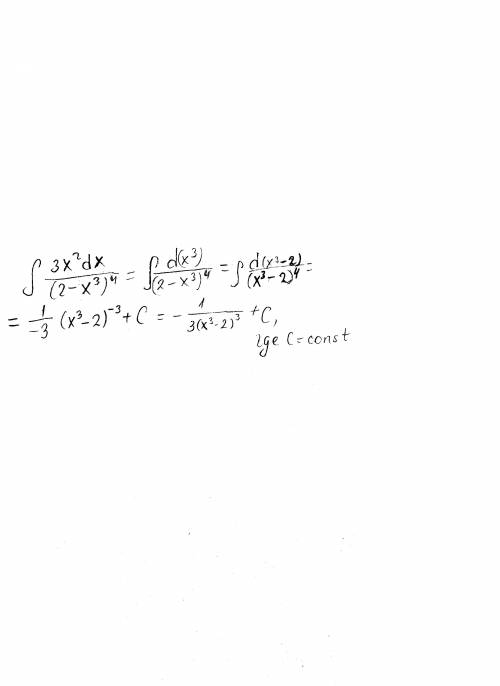 ∫ 3x²dx/(2-x³)⁴ = ∫ d(x³)/(2-x³)⁴ = ∫ d(x³-2)/(x³-2)⁴ =
= 1/-3 (x³-2)⁻³ + C = - 1/3(x³-2)³ + C,
где C = const